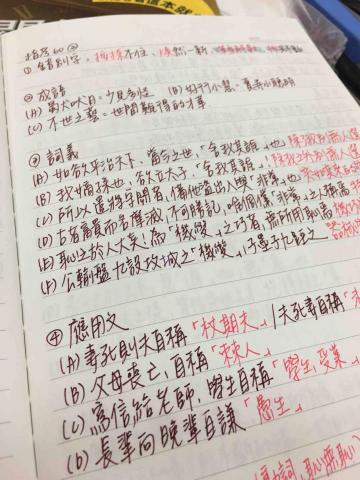 指考60②
① 錯別字：按捺不住、煥然一新
② 成語
(A) 蜀犬吠日＝少見多怪 (B) 好行小慧：喜弄小聰明
(C) 不世之藝：世間難得的才華
③ 詞義
(A) 如欲平治天下，當今之世，「舍我其誰」也
(B) 我嫡孫也，欲立太子，「舍我其誰」
(C) 所以遣將守關者，備他盜出入與「非常」也
(D) 古者富貴而名摩滅，不可勝記，唯倜儻「非常」之人稱焉
(E) 恥之於人大矣！為「機變」之巧者，無所用恥焉
(F) 公輸盤九設攻城之「機變」，子墨子九距之
④ 應用文
(A) 妻死則夫自稱「杖期夫」/夫死妻自稱「
(B) 父母喪亡，自稱「棘人」
(C) 寫信給老師，學生自稱「學生、受業」
(D) 長輩向晚輩自謙「愚生」